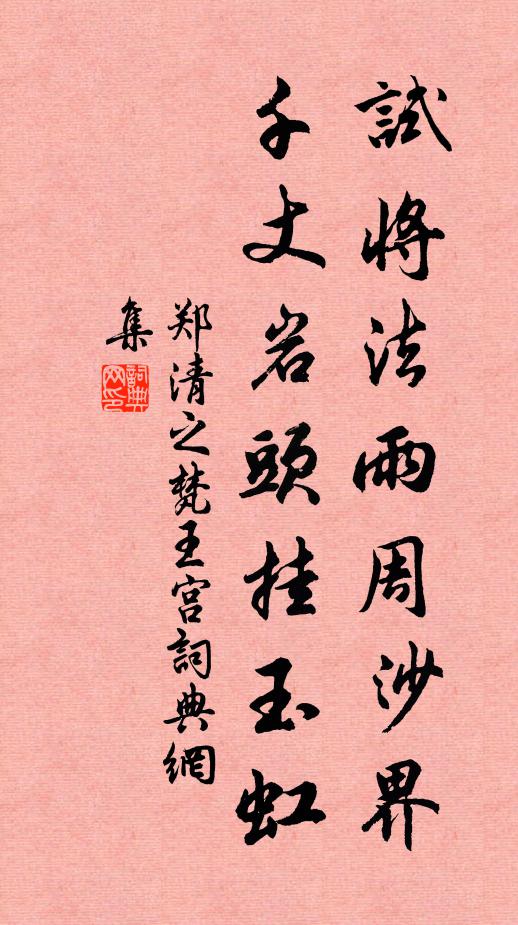 試將法雨周沙界
千丈岩頭挂玉虹
郑清之梵王宫詞典網
集
詞典網印